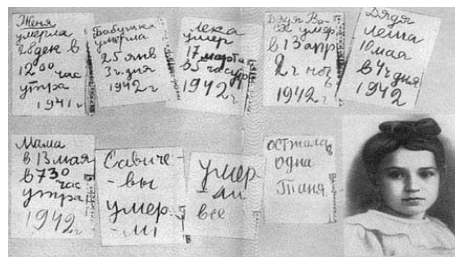 Женя
умерла
28 дек в
12 00 час
утра
1941 г
Бабушка
умерла
25 янв
3 ч. дня
1942 г
Лека
умер
17 марта
в 5 час утр
1942 г
Дядя Ва-
ся умер
в 13 апр
2 ч ноч
1942 г
Дядя
Леша
10 мая
в 4 ч дня
1942
Мама
в 13 мая
в 7 30
час
утра
1942 г
Савиче-
-вы
умер-
-ли
умер-
-ли
все
остала
одна
Таня